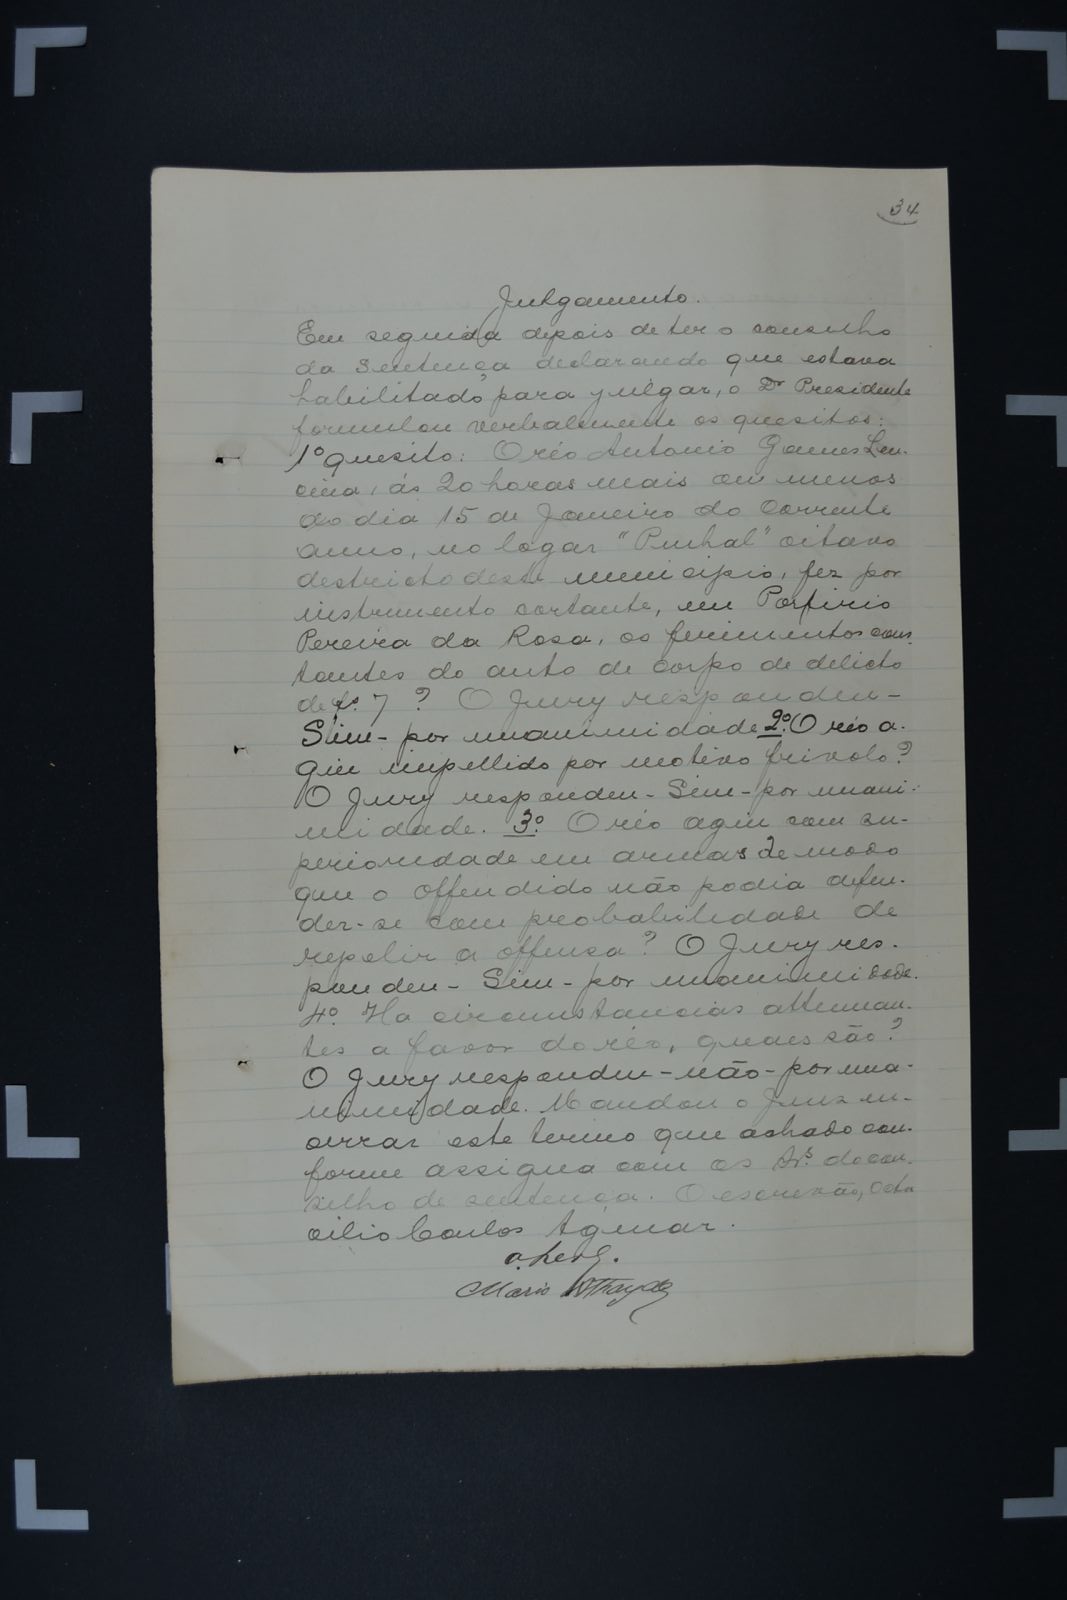 34
Julgamento.
Em seguida depois de ter o conselho
da Sentença declarando que estava
habilitado, para julgar, o Dr Presidente
formulou verbalmente os quesitos:
1º quesito: O réo Antonio Gomes Len-
cina, ás 20 horas mais ou menos
do dia 15 de Janeiro do corrente
anno, no logar "Pinhal" oitavo
destricto deste municipio, fez por
instrumento cortante, em Porfirio
Pereira da Rosa, os ferimentos cons-
tantes do auto de corpo de delicto
de fs. 7 ? O Jury respondeu -
Sim - por unanimidade 2º. O réo a-
giu impellido por motivo frivolo?
O Jury respondeu - Sim - por unani-
midade. 3º. O réo agiu com su-
perioridade em armas de modo
que o offendido não podia defen-
der-se com probabilidade de
repelir a offensa? O Jury res-
pondeu - Sim - por unanimidade.
4º. Ha circumstancias attenuan-
tes a favor do réo, quaes são?
O Jury respondeu - não - por una-
nimidade. Mandou o Juiz en-
cerrar este termo que achado con-
forme assigna com os Srs. do con-
selho de sentença. O escrivão, Octa
cilio Carlos Aguiar.
Mario